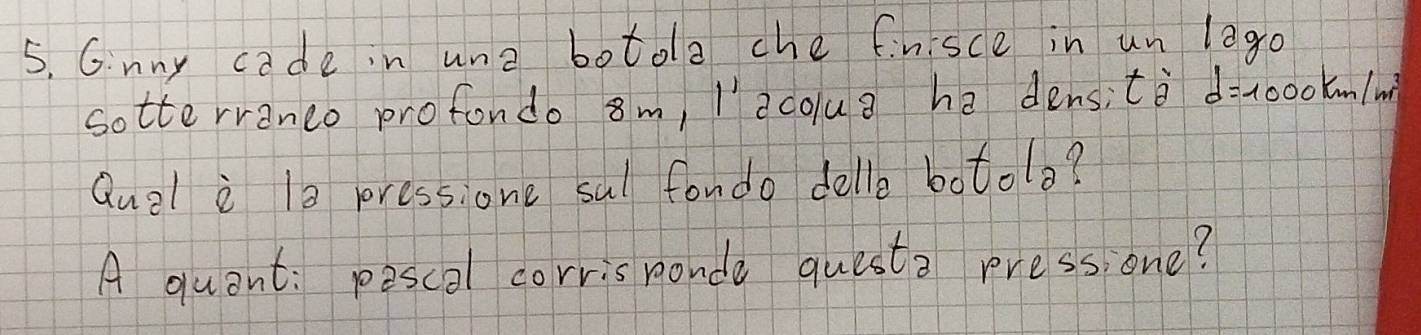 5. Ginny cade in una botola che finisce in un lago
sotterraneo profondo 8m, l'acqua ha densità d=1000km/m³
Qual è la pressione sul fondo della botola?
A quanti pascal corrisponde questa pressione?